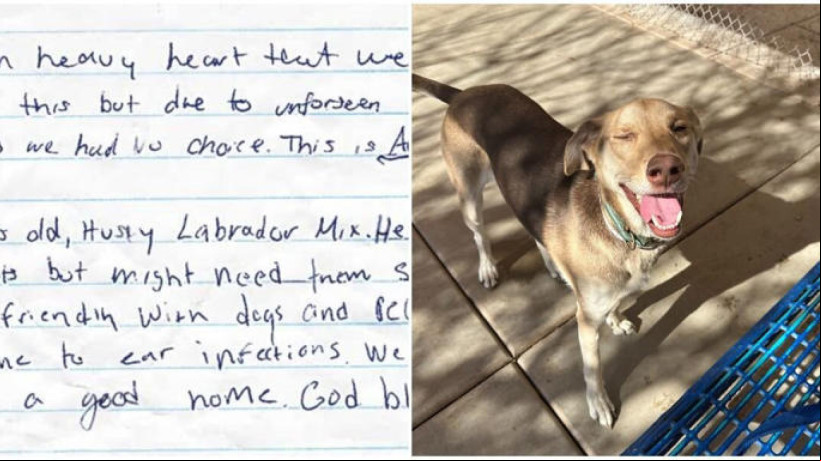 heavy heart that we
this but due to unforseen
we had no choice. This is A
s old, Husky Labrador Mix. He
ts but might need them s
friendly with dogs and
ne to ear infections. We
a good home. God bl